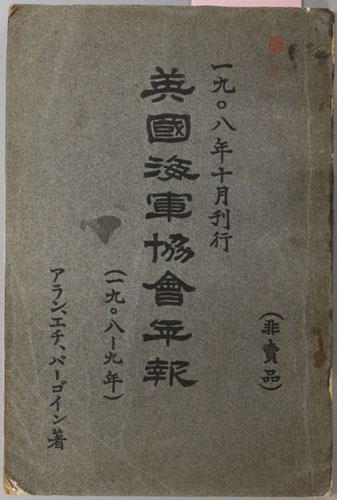 (非賣品)
一九〇八年十月刊行
英國海軍協會年報
(一九〇八-九年)
アラン、エチ、バーゴイン著